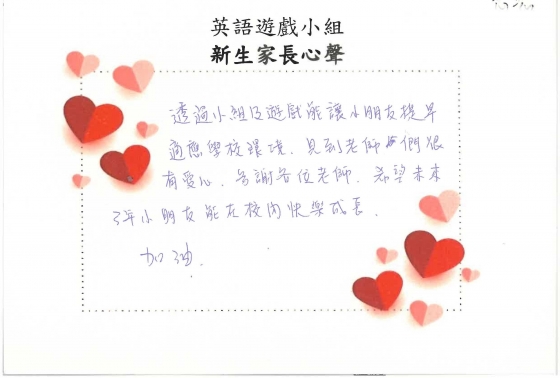 英語遊戲小組
新生家長心聲
透過小組及遊戲能讓小朋友提早
適應學校環境．見到老師們很
有愛心．多謝各位老師．希望未來
3年小朋友能在校內快樂成長．
加油．